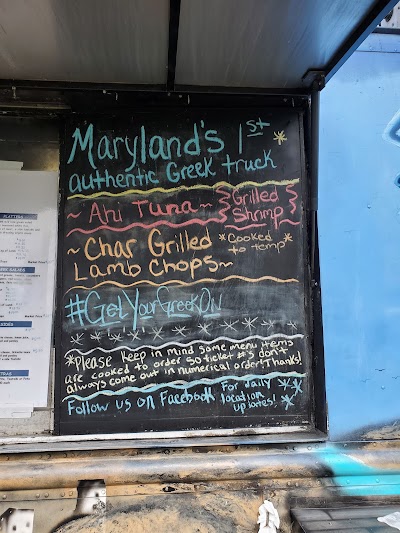 Maryland's 1st
authentic Greek truck
~ Ahi Tuna ~
Grilled
Shrimp
~ Char Grilled
Lamb Chops ~
*Cooked
to temp*
#GetYourGreekOn
*Please keep in mind some menu items
are cooked to order so ticket #'s don't
always come out in numerical order! Thanks!
Follow us on Facebook
For daily
location
updates!